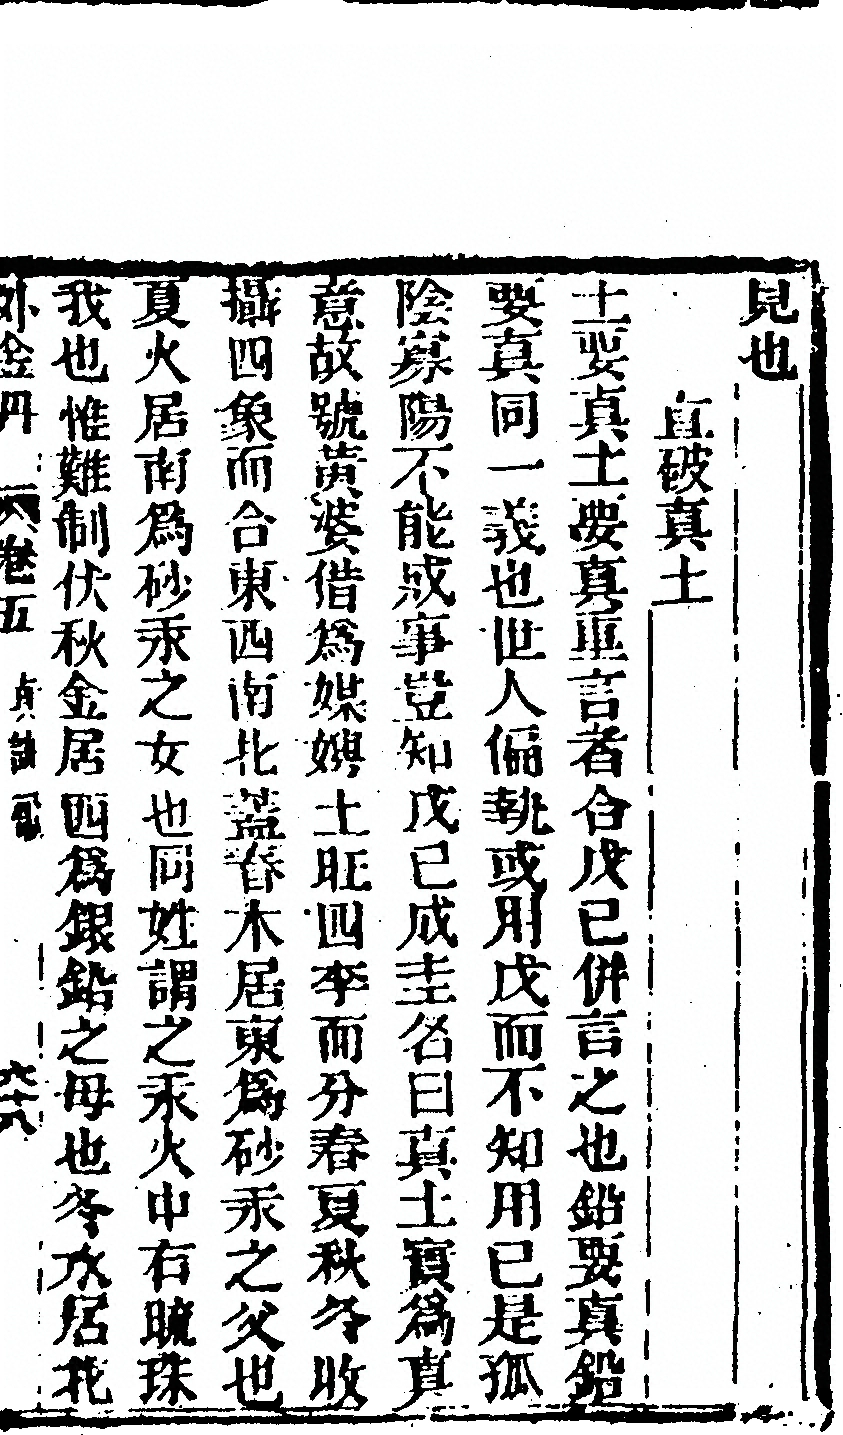 見也
直破真土
土要真土要真眞言者合戊已併言之也鉛要真鉛
要真同一義也世人偏執或用戊而不知用已是狐
陰寡陽不能成事豈知戊已成圭名曰真土實為真
意故號黃婆借為媒娉土旺四季而分春夏秋冬收
攝四象而合東西南北蓋春木居東為砂汞之父也
夏火居南為砂汞之女也同姓謂之汞火中有硫珠
我也惟難制伏秋金居西為銀鉛之母也冬水居北
外金丹 卷五 六十八